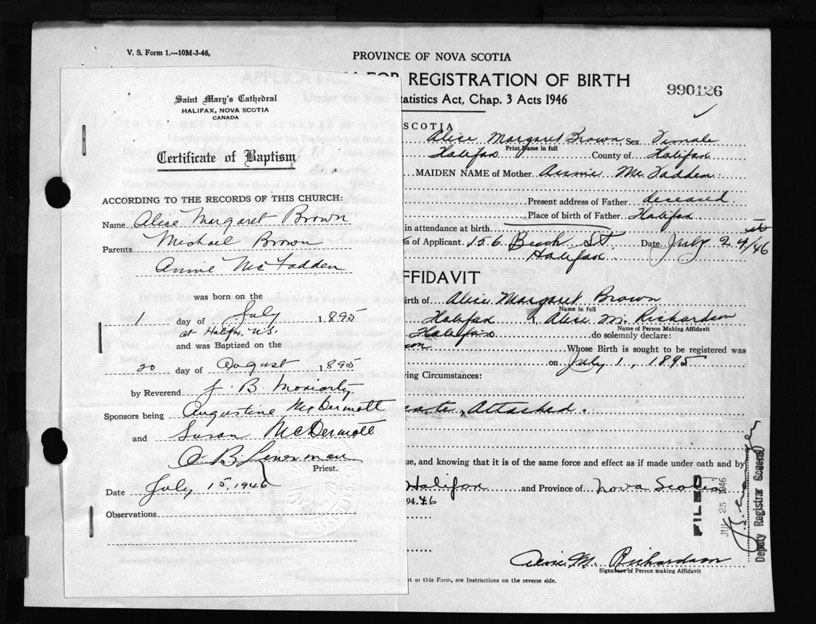 V. S. Form 1.—10M-3-46,
PROVINCE OF NOVA SCOTIA
FOR REGISTRATION OF BIRTH
990126
tatistics Act, Chap. 3 Acts 1946
Saint Mary's Cathedral
HALIFAX, NOVA SCOTIA
CANADA
Certificate of Baptism
ACCORDING TO THE RECORDS OF THIS CHURCH:
Name Alice Margaret Brown
Parents Michael Brown
Annie McFadden
was born on the
1 day of July, 1895
at Halifax, N.S.
and was Baptized on the
20 day of August, 1895
by Reverend J. B. Moriarty
Sponsors being Augustine McDermott
and Susan McDermott
Priest.
Date July 15, 1946
Observations
SCOTIA
Alice Margaret Brown Sex Female
Print Name in full
Halifax County of Halifax
MAIDEN NAME of Mother Annie McFadden
Present address of Father deceased
Place of birth of Father Halifax
in attendance at birth
s of Applicant 156 Beech St Date July 24 /46
Halifax
AFFIDAVIT
birth of Alice Margaret Brown
Name in full
Halifax I, Alice M. Richardson
Name of Person Making Affidavit
Halifax do solemnly declare:
Whose Birth is sought to be registered was
on July 1, 1895
ing Circumstances:
Attached.
ue, and knowing that it is of the same force and effect as if made under oath and by
Halifax and Province of Nova Scotia
194 46
FILED
JUL 25 1946
Deputy Registrar General
Alice M. Richardson
Signature of Person making Affidavit
t or this Form, see Instructions on the reverse side.